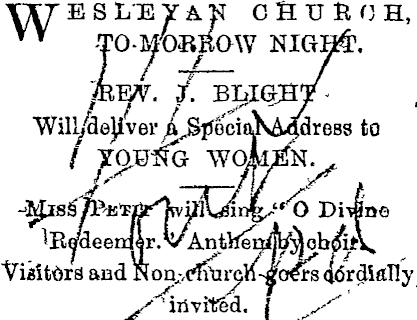 WESLEYAN CHURCH,
TO-MORROW NIGHT.
REV. J. BLIGHT
Will deliver a Special Address to
YOUNG WOMEN.
MISS PETIT will sing "O Divine
Redeemer." Anthem by choir.
Visitors and Non-church-goers cordially
invited.